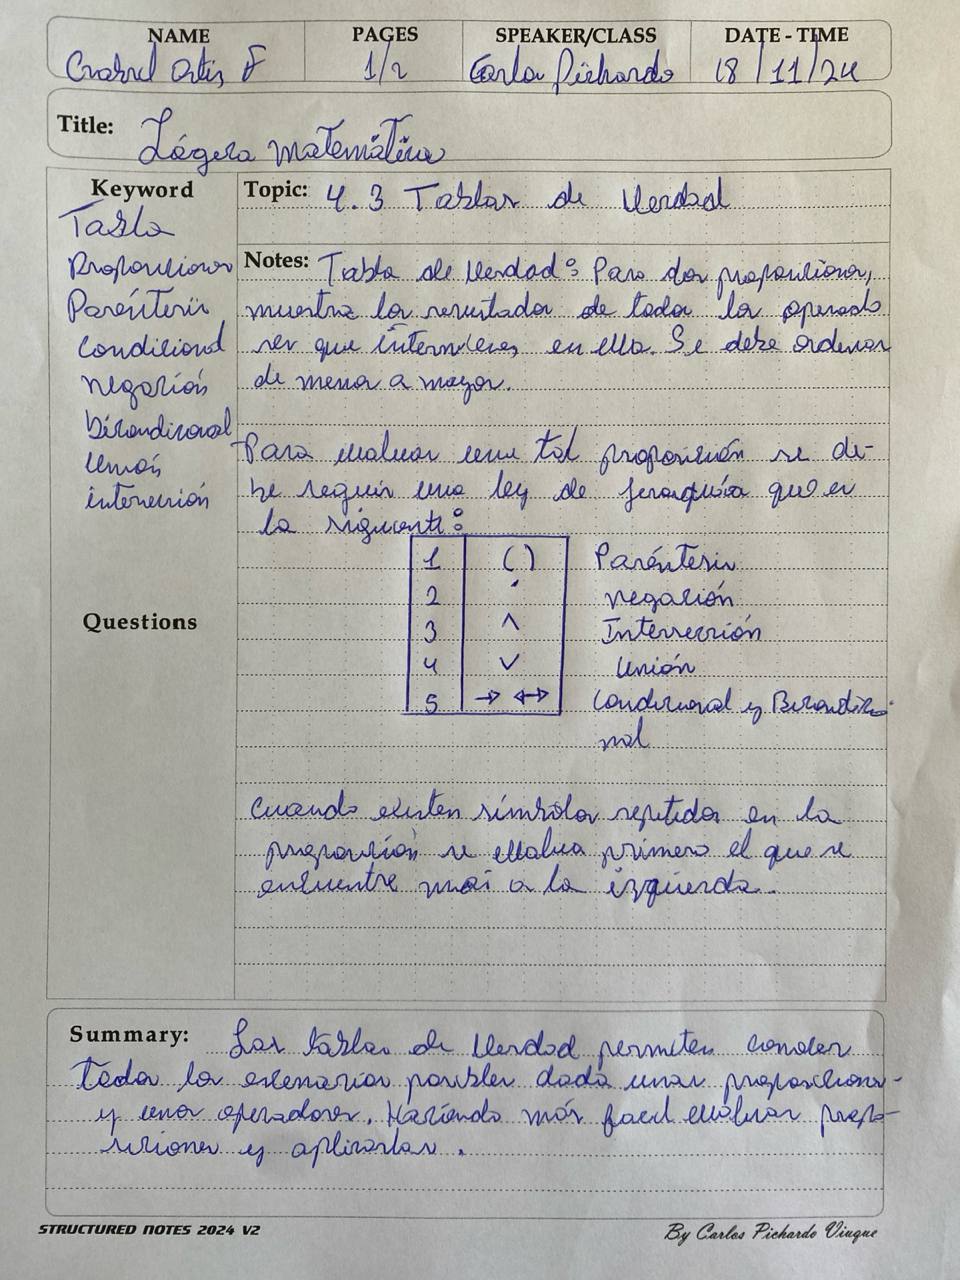 NAME PAGES SPEAKER/CLASS DATE - TIME
1/2 Carlos Pichardo 18/11/24
Title: Lógica matemática
Keyword
Tabla
Proposiciones
Paréntesis
Condicional
negación
bicondicional
Unión
intersección
Questions
Topic: 4.3 Tablas de Verdad
Notes: Tabla de Verdad: Para dos proposiciones,
muestra los resultados de todos los operado
res que intervienes en ella. Se debe ordenar
de menor a mayor.
Para evaluar una tal proposición se de-
be seguir una ley de jeraquía que es
la siguiente:
1 ( ) Paréntesis
2 ' negación
3 ∧ Intersección
4 ∨ Unión
5 → ↔ Condicional y Bicondicio-
nal
Cuando existen símbolos repetidos en la
proposición se evalua primero el que se
encuentre mas a la izquierda.
Summary: Las tablas de Verdad permiten conocer
todos los escenarios posibles dada unas proposiciones
y unos operadores. Haciendo más facil evaluar propo-
siciones y aplicarlas.
STRUCTURED NOTES 2024 V2
By Carlos Pichardo Viuque